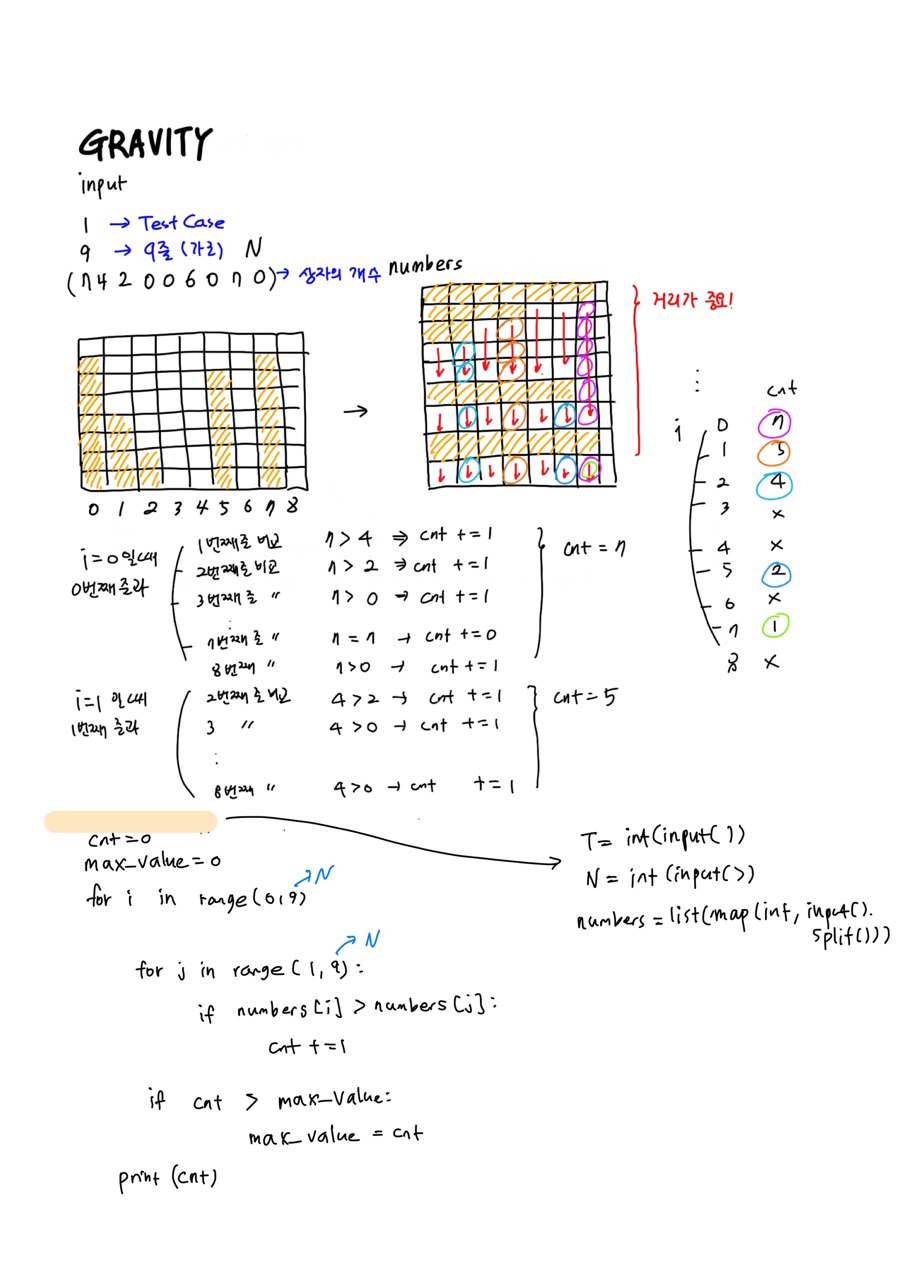 GRAVITY
input
1 → Test Case
9 → 9줄 (가로) N
(7 4 2 0 0 6 0 7 0) → 상자의 개수 numbers
거리가 중요!
→
0 1 2 3 4 5 6 7 8
⋮ cnt
i 0 7
1 5
2 4
3 x
4 x
5 2
6 x
7 1
8 x
i=0일때
0번째 줄과
1번째줄 비교 7 > 4 ⇒ cnt += 1
2번째줄 비교 7 > 2 ⇒ cnt += 1
3번째 줄 〃 7 > 0 → cnt += 1
⋮
7번째줄 〃 7 = 7 → cnt += 0
8번째 〃 7 > 0 → cnt += 1
cnt = 7
i=1 일때
1번째 줄과
2번째 줄 비교 4 > 2 → cnt += 1
3 〃 4 > 0 → cnt += 1
⋮
8번째 〃 4 > 0 → cnt += 1
cnt = 5
cnt = 0
max_value = 0
for i in range(0, 9) → N
for j in range(1, 9): → N
if numbers[i] > numbers[j]:
cnt += 1
if cnt > max_value:
max_value = cnt
print (cnt)
T = int(input())
N = int(input())
numbers = list(map(int, input().
split()))